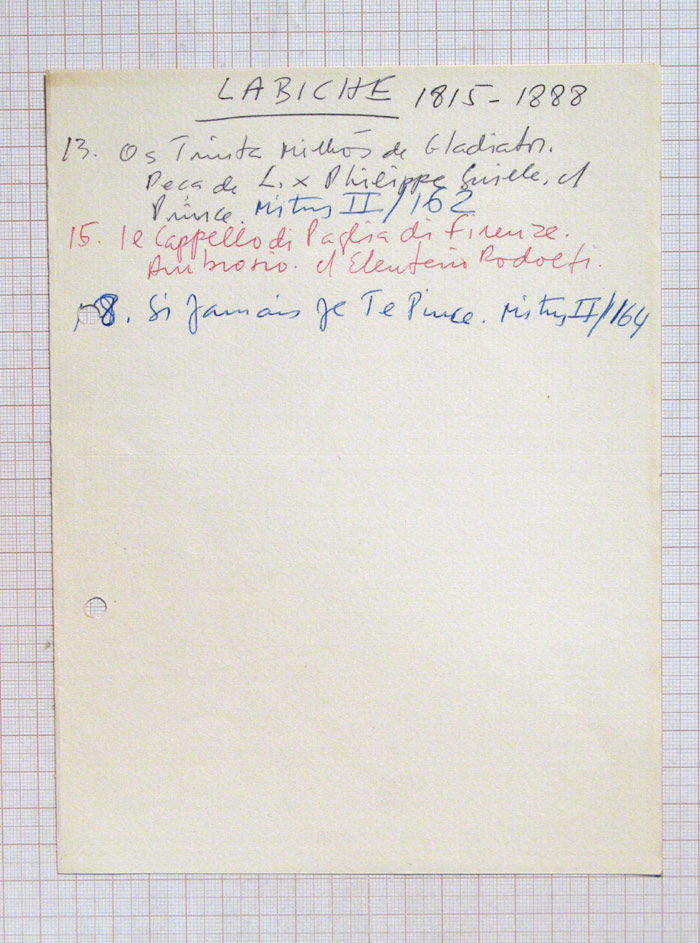 LABICHE 1815-1888
13. Os Trinta Milhões de Gladiator.
Peça de L. x Philippe Gille, d
Prince. Mistus II/162
15. Il Cappello di Paglia di Firenze.
Ambrosio. d Eleuterio Rodolfi.
8. Si Jamais Je Te Pince. Mistus II/164